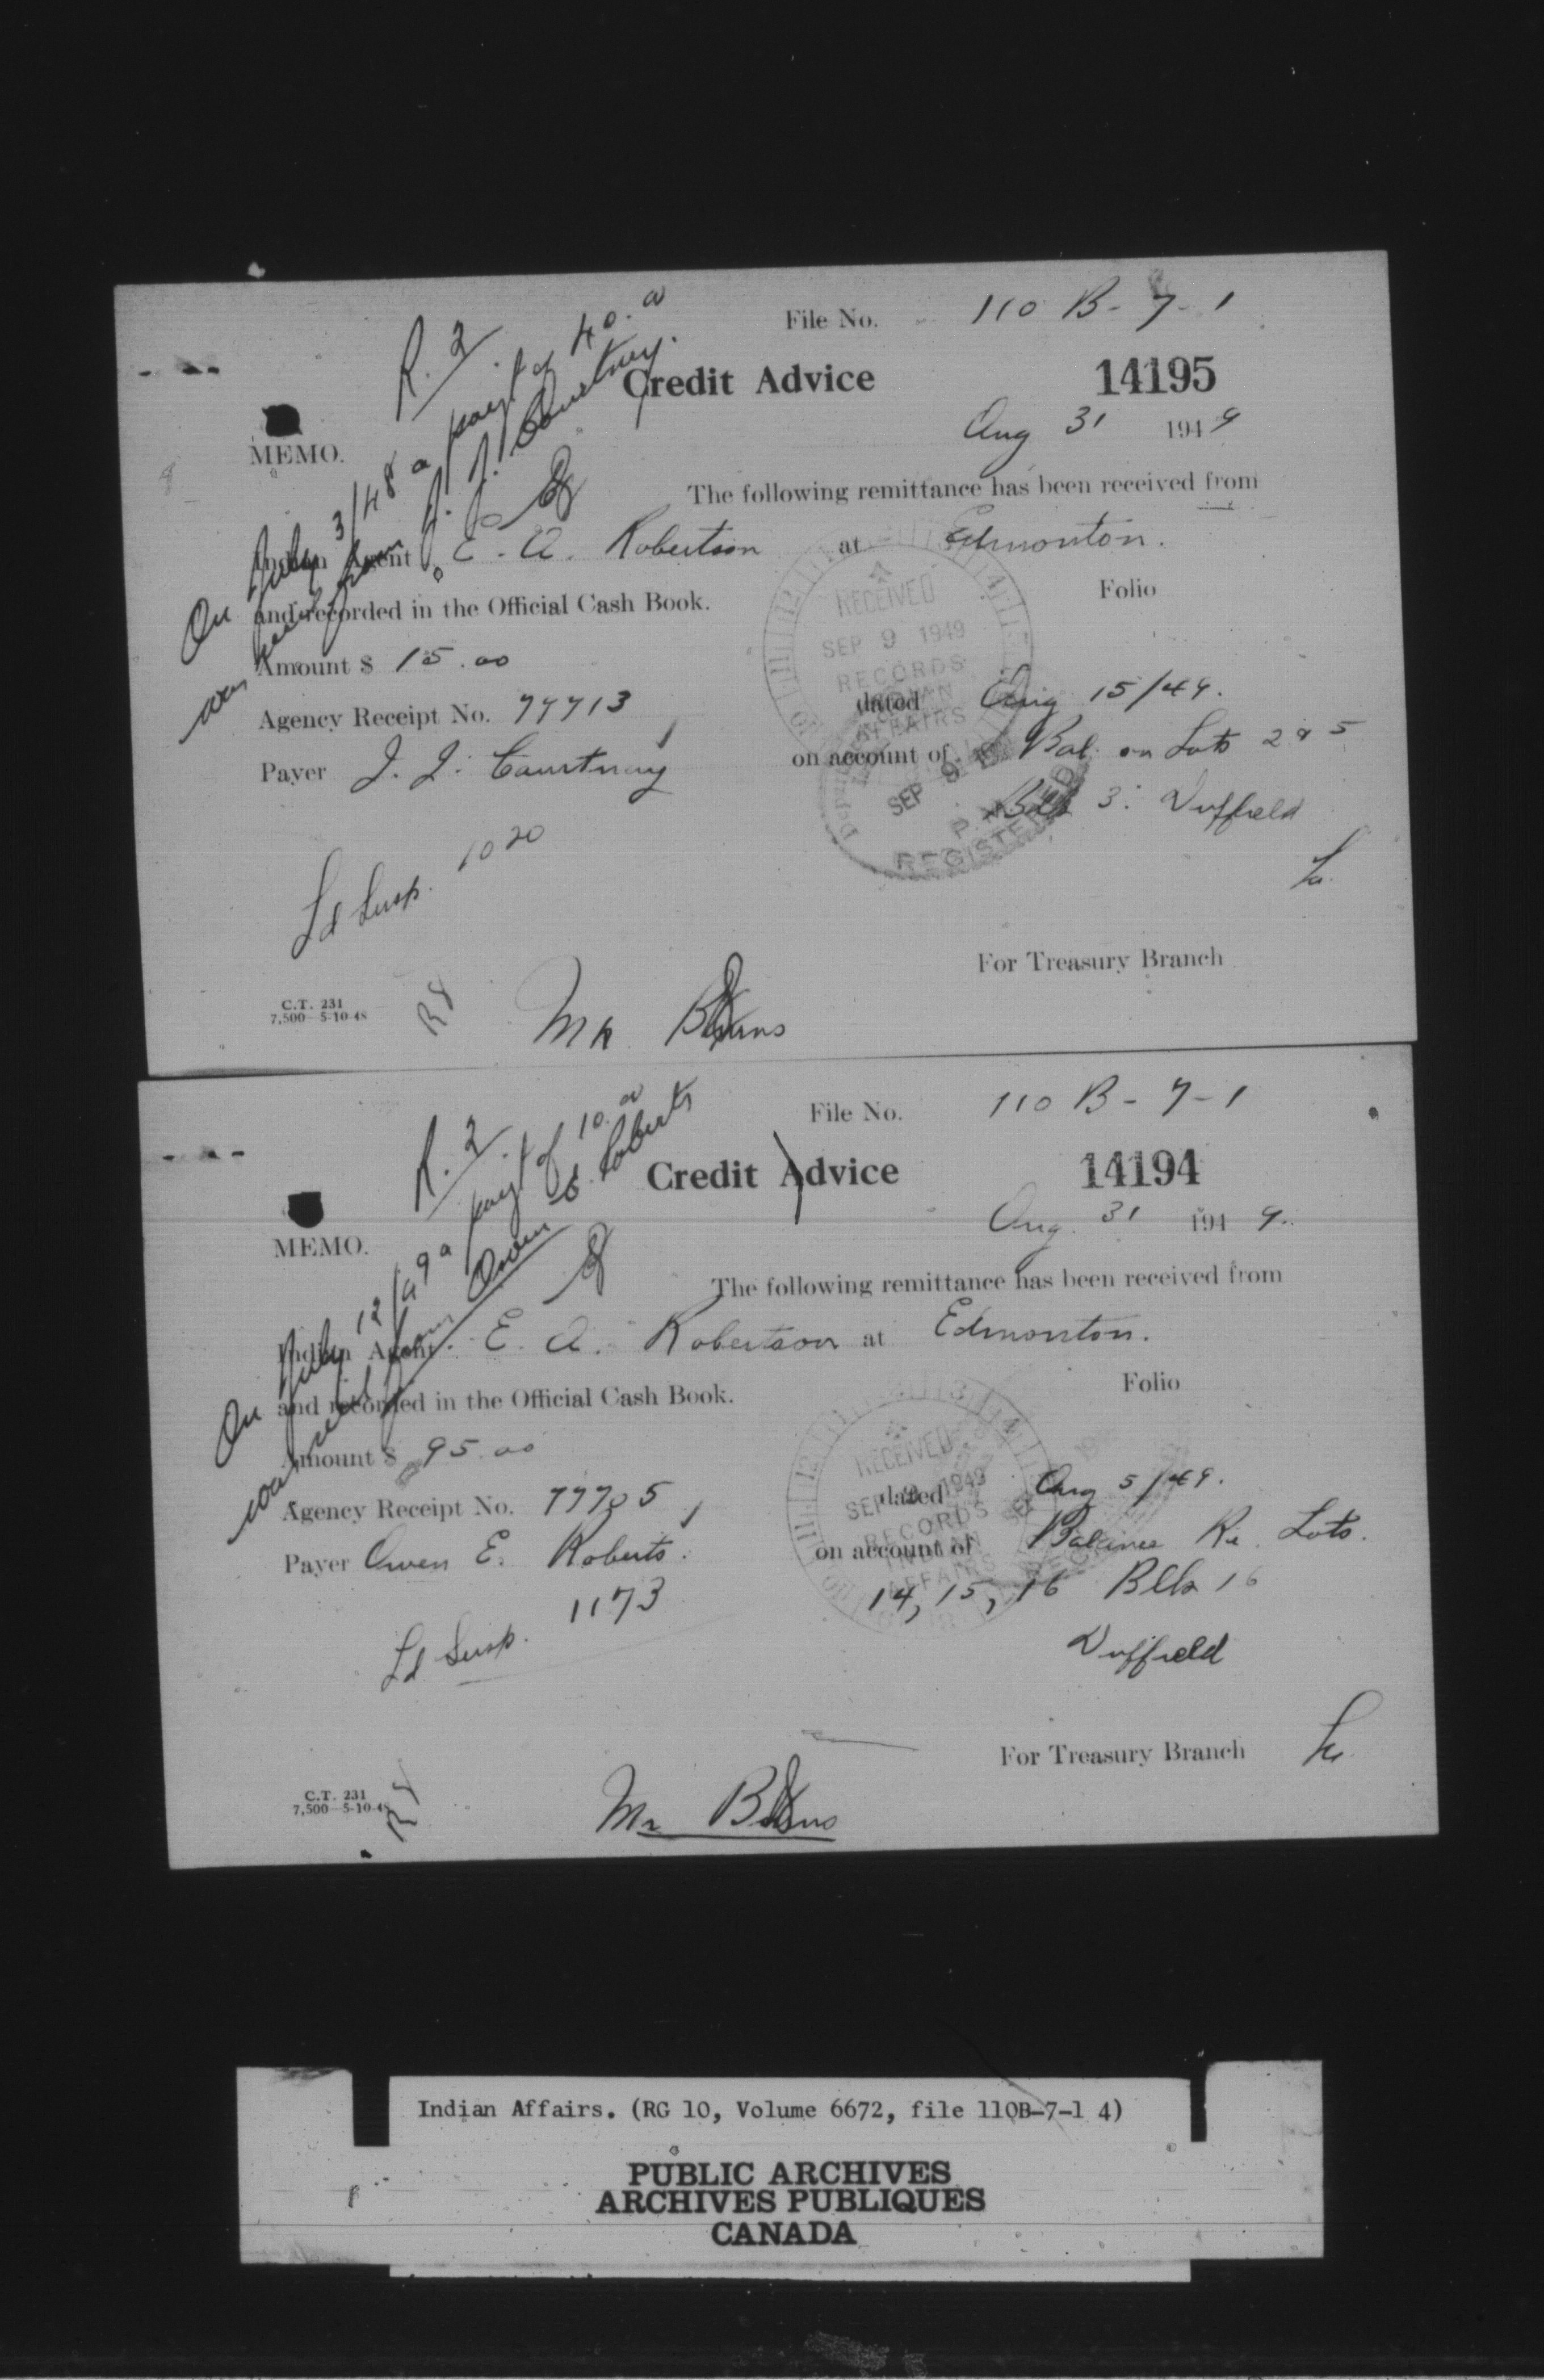 File No. 110 B-7-1
R. 2
Credit Advice 14195
Aug 31 1949
MEMO.
On July 3/48 a payt of 40.00
was recd from J. J. Courtney.
The following remittance has been received from
Indian Agent E. A. Robertson at Edmonton.
and recorded in the Official Cash Book. Folio
Amount $ 15.00
Agency Receipt No. 77713 dated Aug 15/49.
Payer J. J. Courtnay on account of Bal. on Lots 2 & 5
Blk 3. Duffield
RECEIVED
SEP 9 1949
RECORDS
INDIAN
AFFAIRS
SEP 9
REGISTERED
Ld Susp. 1020
For Treasury Branch
C.T. 231
7,500-5-10-48
RX
Mr
File No. 110 B-7-1
R. 2
Credit Advice 14194
Aug. 31 1949.
MEMO.
On July 12/49 a payt of 10.00
was recd from Owen E. Roberts
The following remittance has been received from
Indian Agent E. A. Robertson at Edmonton.
and recorded in the Official Cash Book. Folio
Amount $ 95.00
Agency Receipt No. 77705 dated Aug 5/49.
Payer Owen E. Roberts. on account of Balance Re. Lots.
14, 15, 16 Blk 16
Duffield
RECEIVED
SEP 9 1949
RECORDS
INDIAN
AFFAIRS
Ld Susp. 1173
For Treasury Branch
C.T. 231
7,500-5-10-48
RX
Mr
Indian Affairs. (RG 10, Volume 6672, file 110B-7-1 4)
PUBLIC ARCHIVES
ARCHIVES PUBLIQUES
CANADA